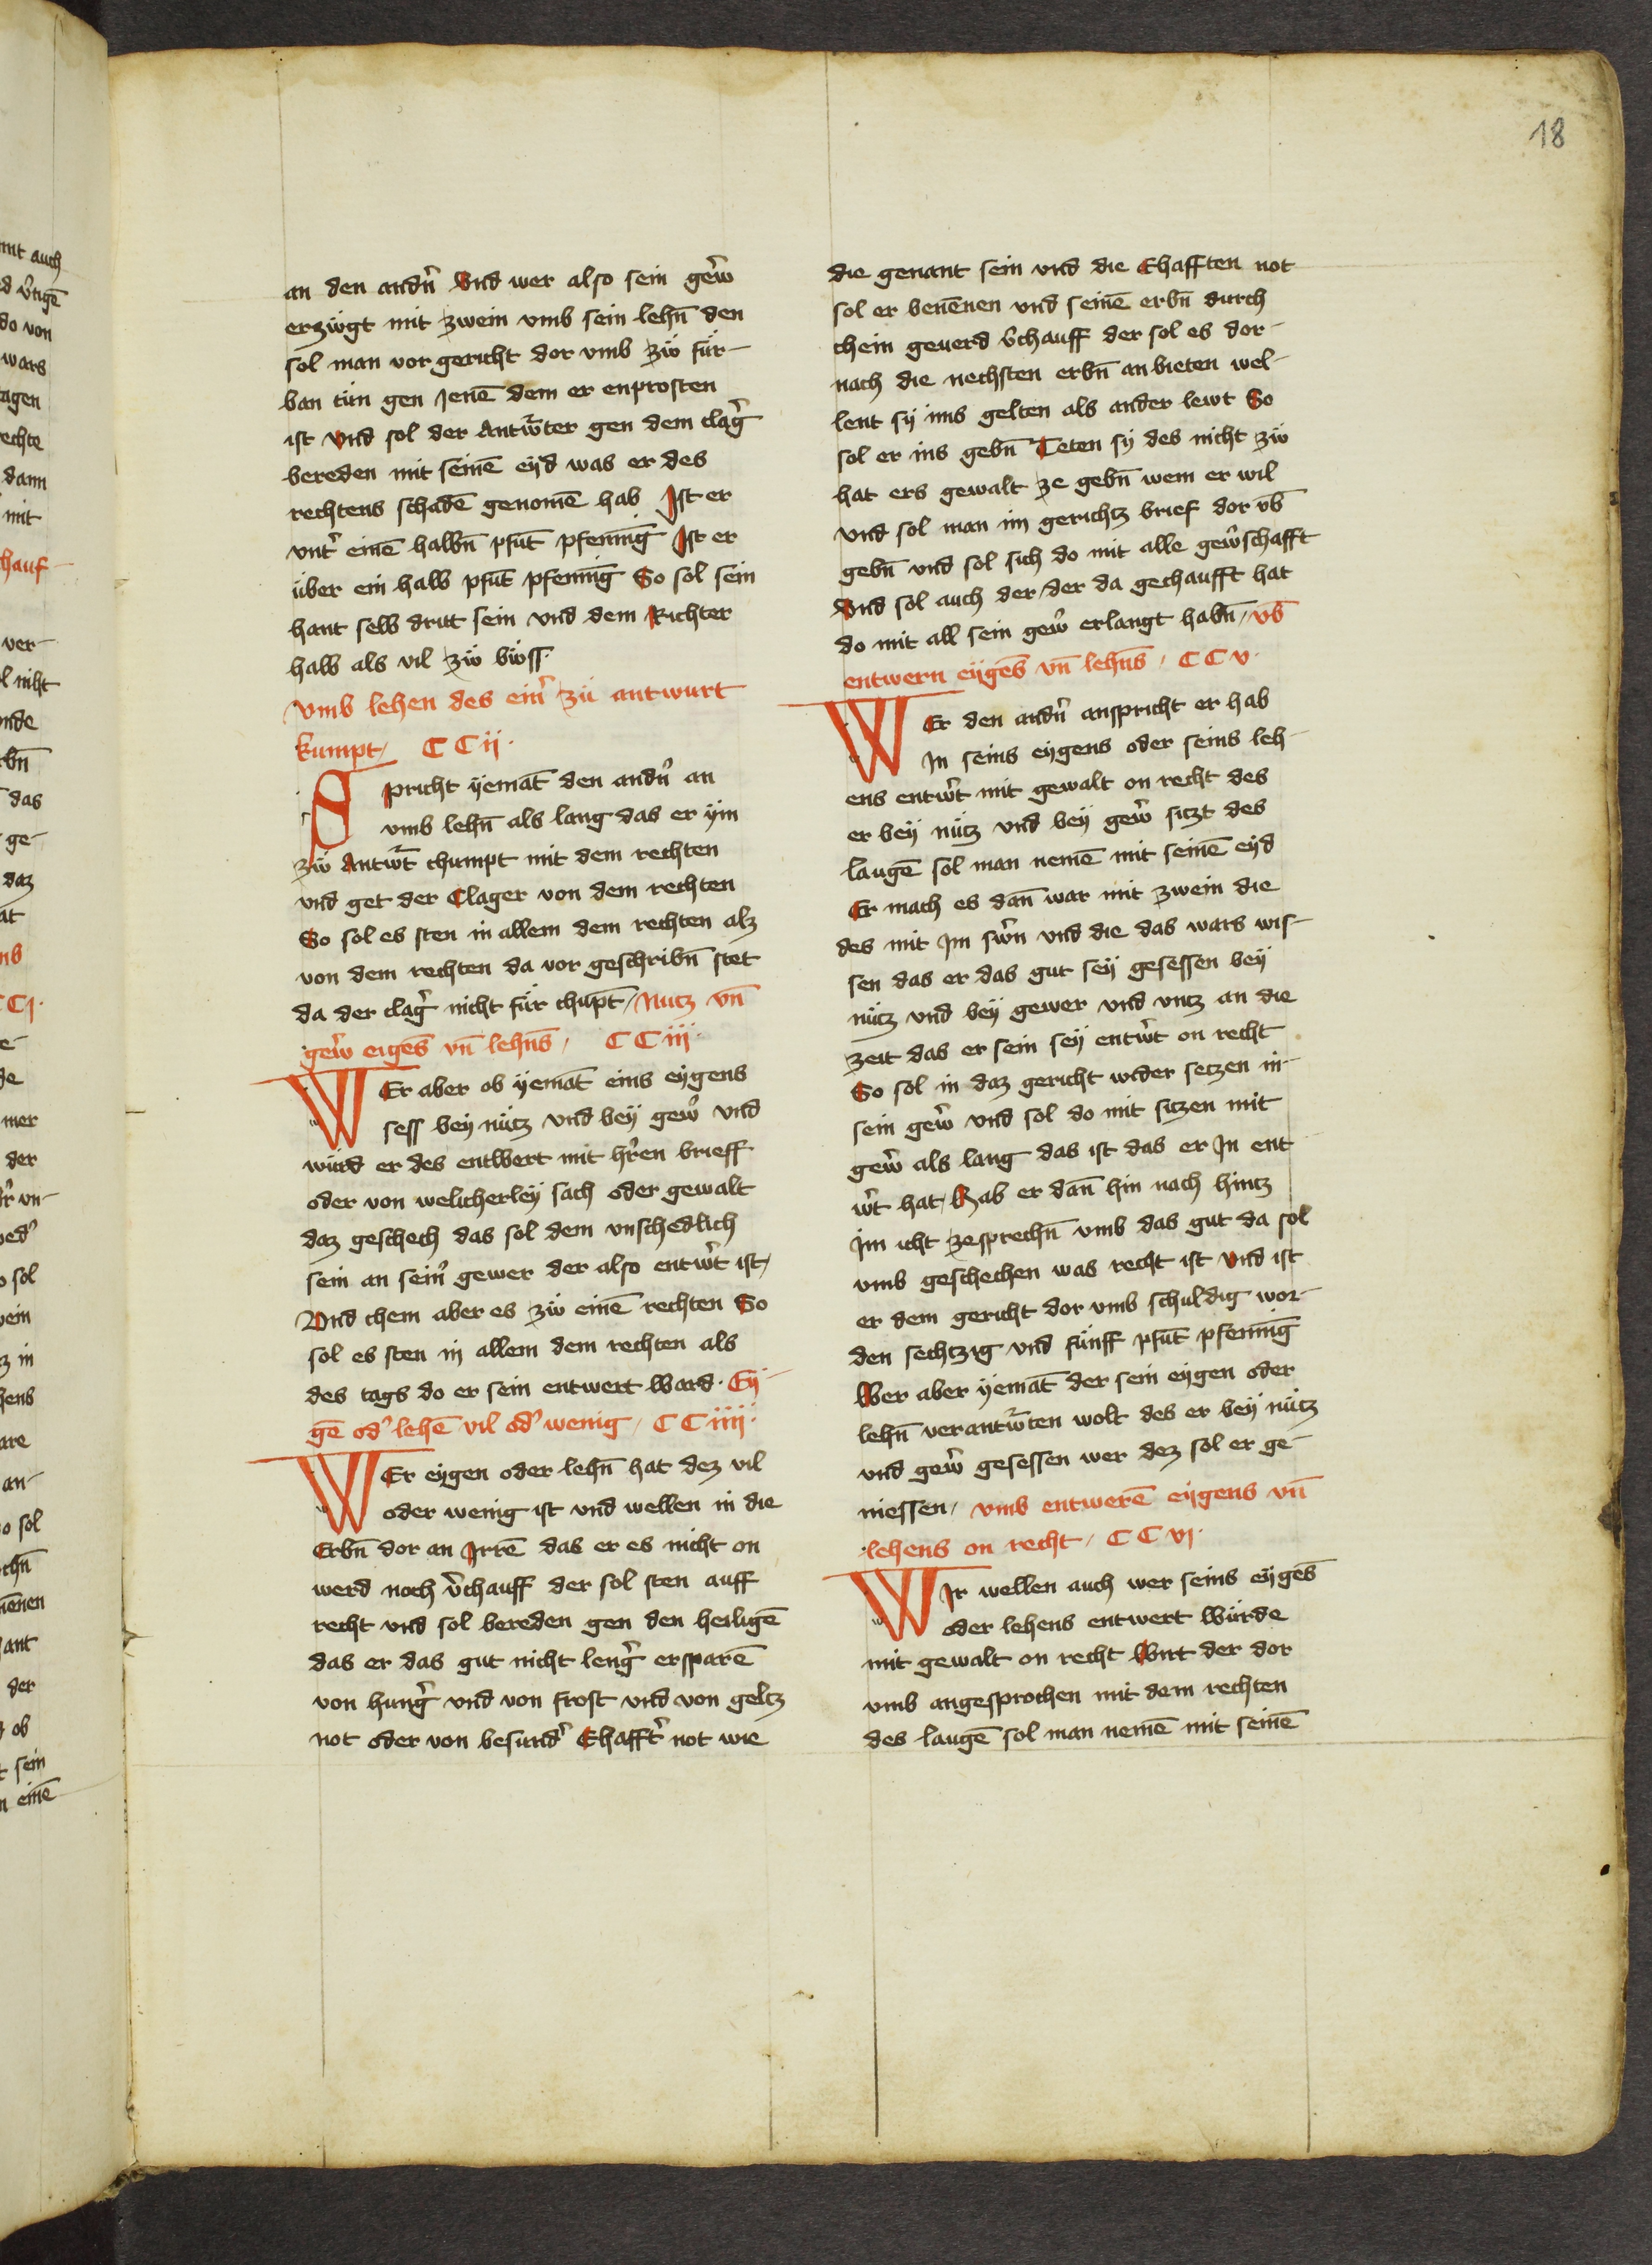 18
an den andn̉ Vnd wer also sein gew̉
erzẅgt mit zwein vmb sein lehn̄ den
sol man vor gericht dor vmb zẅ für-
ban tün gen Jenē dem er enprosten
ist Vnd sol der Antw̉ter gen dem clag̉
bereden mit seinē eyd was er des
rechtens schadē genomē hab Ist er
vnt̉ einē halbn̄ pfūt pfenni̅g Ist er
über ein halb pfūt pfenni̅g So sol sein
hant selb dritt sein vnd dem Richter
halb als vil zẅ bẅss·
vmb lehen des ein̉ zü antwurt
kumpt / CC ij·
Spricht yemāt den andn̉ an
vmb lehn̄ als lang das er ym
zẅ Antw̉t chumpt mit dem rechten
vnd get der Clager von dem rechten
So sol es sten in allem dem rechten alz
von dem rechten da vor geschribn̄ stet
da der clag̉ nicht für chupt̄ / Nutz vn̄
gew̉ eigēs vn̄ lehn̄s / CC iij·
WEr aber ob yemāt eins eygens
sess bey nütz vnd bey gew̉ vnd
würd er des entwert mit hr̉en brieff
oder von welicherley sach oder gewalt
daz geschech das sol dem vnschedlich
sein an sein̉ gewer der also entw̉t ist /
Vnd chem aber es zẅ einē rechten So
sol es sten in allem dem rechten als
des tags do er sein entwert ward· Ey-
gē od̉ lehē vil od̉ wenig / CC iiij·
WEr eygen oder lehn̄ hat dez vil
oder wenig ist vnd wellen in die
Erbn̄ dor an Irrē das er es nicht on
werd noch v̉chauff der sol sten auff
recht vnd sol bereden gen den heiligē
das er das gut nicht leng̉ ersparē
von hung̉ vnd von frost vnd von geltz
not oder von besund̉ Ehafft̉ not wie
die genant sein vnd die Ehafften not
sol er benēnen vnd seinē erbn̄ durch
chein geuerd v̉chauff der sol es dor-
nach die nechsten erbn̄ an bieten wel-
lent sy ims gelten als ander lewt So
sol er ins gebn̄ Teten sy des nicht zẅ
hat ers gewalt ze gebn̄ wem er wil
vnd sol man im gerichtz brief dor vb̄
gebn̄ vnd sol sich do mit alle gew̉schafft
Vnd sol auch der / der da gechaufft hat
do mit all sein gew̉ erlangt habn̄ / vb̄
entwern eygēs vn̄ lehn̄s / CC v·
WEr den andn̉ anspricht er hab
In seins eygens oder seins leh-
ens entw̉t mit gewalt on recht des
er bey nütz vnd bey gew̉ sitzt des
laugē sol man nemē mit seinē eyd
Er mach es dan̄ war mit zwein die
des mit Im sw̉n vnd die das wars wis-
sen das er das gut sey gesessen bey
nütz vnd bey gewer vnd vntz an die
zeit das er sein sey entw̉t on recht
So sol in daz gericht wider setzen in-
sein gew̉ vnd sol do mit sitzen mit
gew̉ als lang das ist das er In ent
w̉t hat / Hab er dan̄ hin nach hintz
Im icht ze sprechn̄ vmb das gut da sol
vmb geschechen was recht ist Vnd ist
er dem gericht dor vmb schuldig wor-
den sechtzig vnd fünff pfūt pfenni̅g
Wer aber yemāt der sein eygen oder
lehn̄ verantw̉ten wolt des er bey nütz
vnd gew̉ gesessen wer dez sol er ge-
niessen / vmb entwerē eygens vn̄
lehens on recht / CC vj·
WIr wellen auch wer seins eygēs
oder lehens entwert würde
mit gewalt on recht Wirt der dor
vmb angesprochen mit dem rechten
des laugē sol man nemē mit seinē